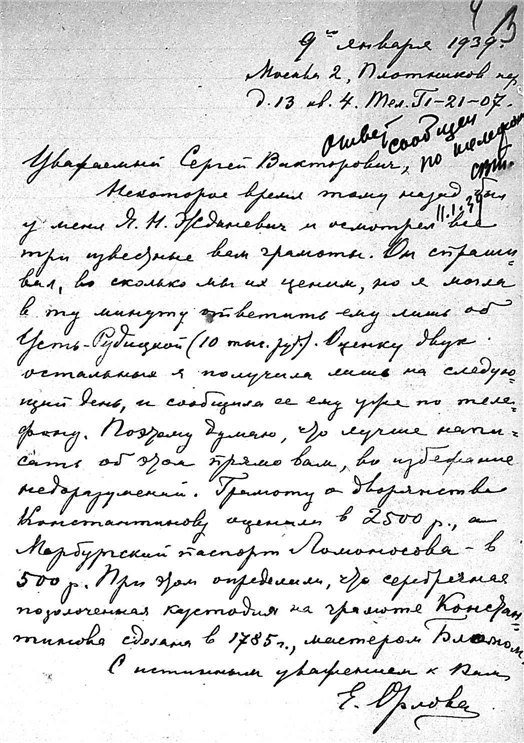 9го января 1939г.
Москва 2, Плотников пер.
д. 13 кв. 4. Тел. Г1-21-07.
ответ сообщен
по телефону
11.I.39
Уважаемый Сергей Викторович,
Некоторое время тому назад был
у меня Я. Н. Жданевич и осмотрел все
три известные вам грамоты. Он спраши-
вал, во сколько мы их ценим, но я могла
в ту минуту ответить ему лишь об
Усть-Рудицкой (10 тыс. руб). Оценку двух
остальных я получила лишь на следую-
щий день, и сообщила ее ему уже по теле-
фону. Поэтому думаю, что лучше напи-
сать об этом прямо вам, во избежание
недоразумений. Грамоту о дворянстве
Константинову оценили в 2500 р., а
Марбургский паспорт Ломоносова - в
500 р. При этом определили, что серебрячная
позолоченная кустодия на грамоте Констан-
тинова сделана в 1785 г., мастером Бломом.
С истинным уважением к Вам
Е. Орлова